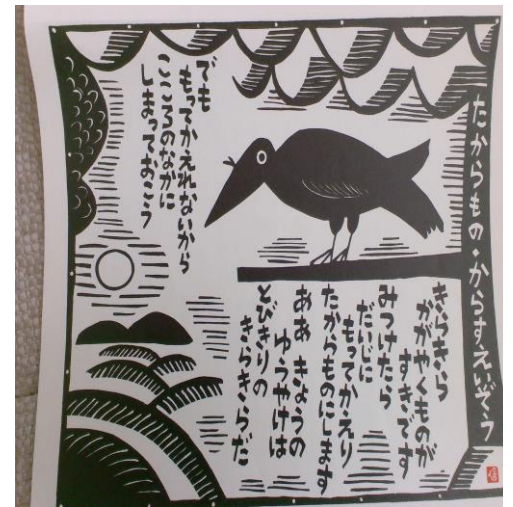 たからもの・からすえいぞう
きらきら
かがやくものが
すきです
みつけたら
だいじに
もってかえり
たからものにします
ああ きょうの
ゆうやけは
とびきりの
きらきらだ
でも
もってかえれないから
こころのなかに
しまっておこう